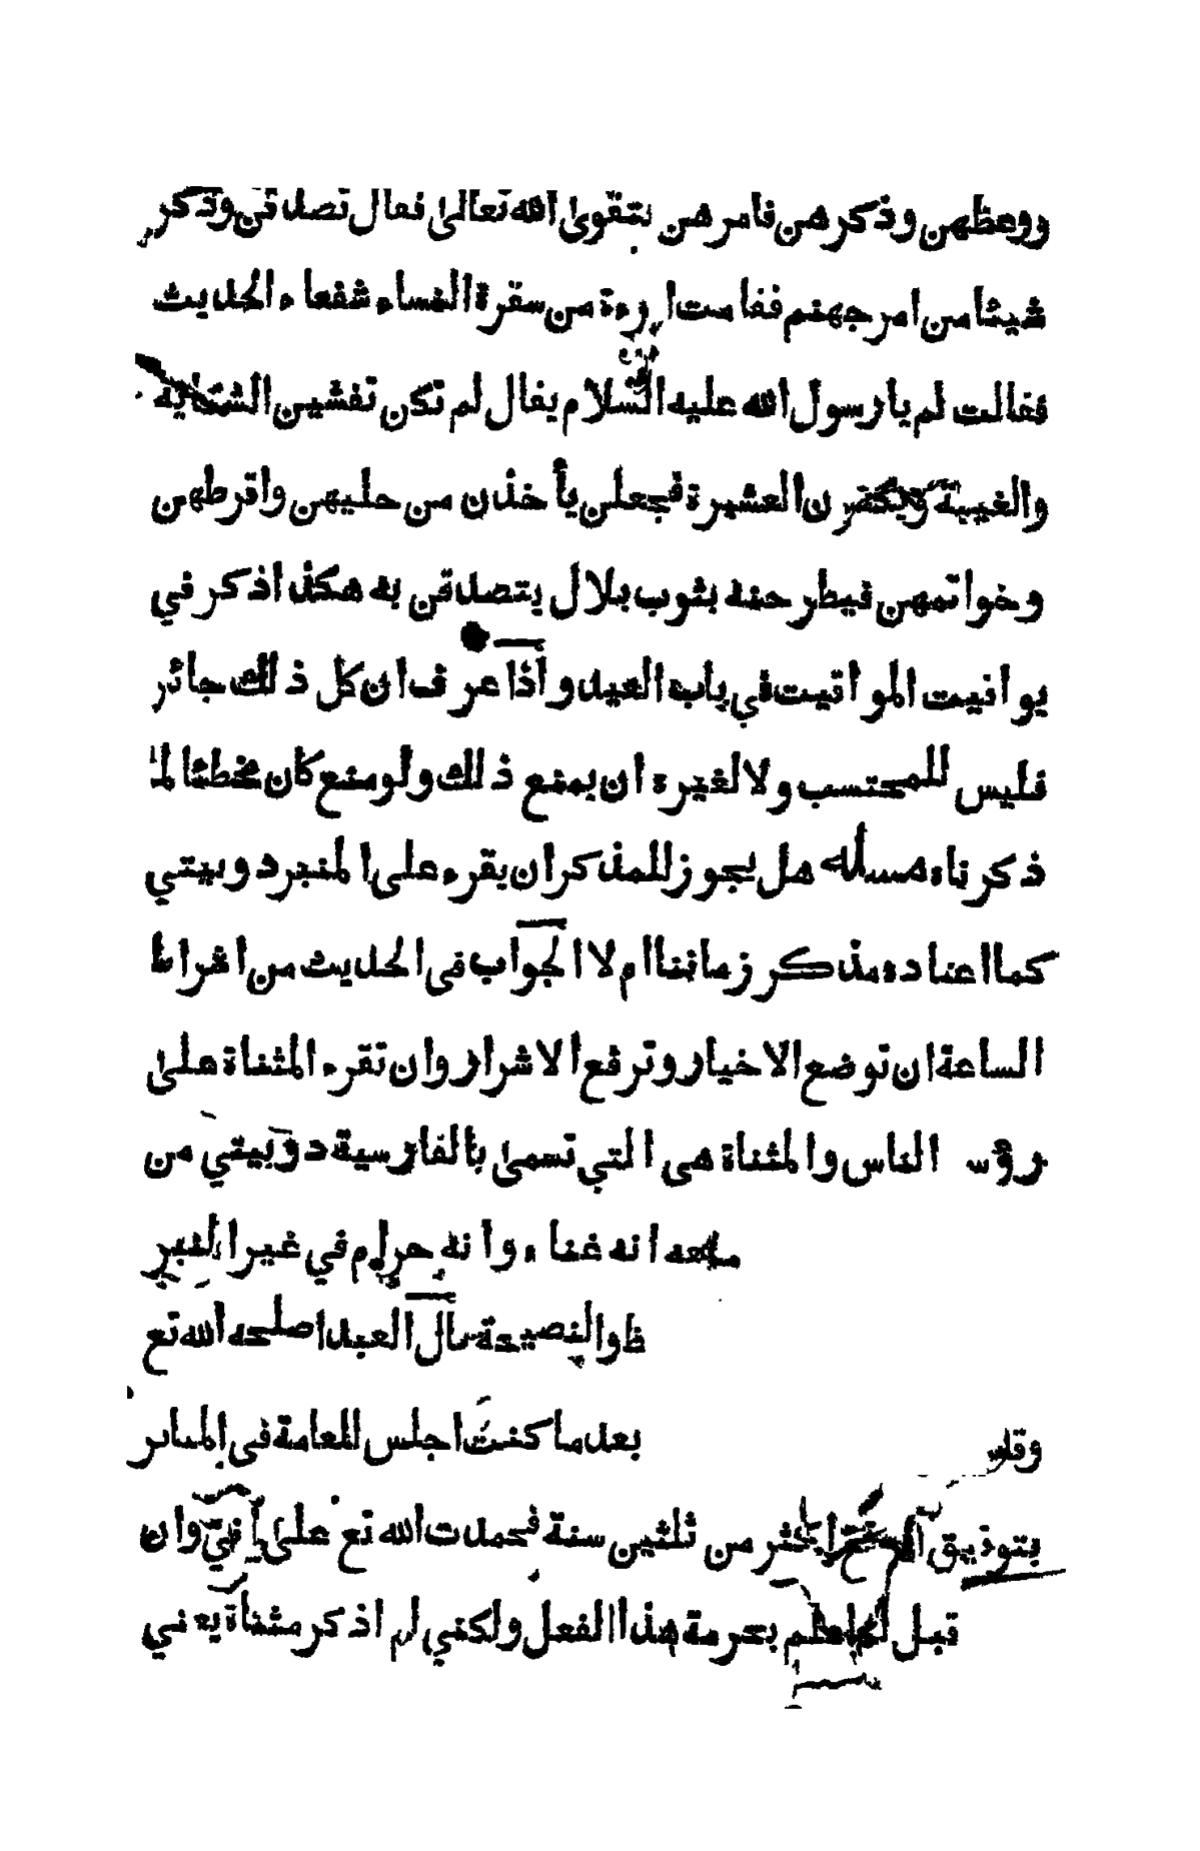 ووعظهن وذكرهن فامرهن بتقوى الله تعالى فقال تصدقن وذكر
شيئا من امر جهنم فقامت امرءة من سفرة النساء شفعاء الحديث
فقالت لم يا رسول الله عليه السلام يقال لم تكن تفشين الشكاية
والغيبة وتكفرن العشيرة فجعلن يأخذن من حليهن واقرطهن
وخواتمهن فيطرحنه بثوب بلال يتصدقن به هكذا ذكر في
يواقيت المواقيت في باب العيد واذا عرف ان كل ذلك جائز
فليس للمحتسب ولا لغيره ان يمنع ذلك ولو منع كان مخطئا لما
ذكرناه مسأله هل يجوز للمذكر ان يقرء على المنبر دوبيتي
كما اعتاده مذكر زماننا ام لا الجواب فى الحديث من اشراط
الساعة ان توضع الاخيار وترفع الاشرار وان تقرء المثناة على
رؤس الناس والمثناة هى التي تسمى بالفارسية دوبيتي من
انه غناء وانه حرام في غير المنبر
ظ والنصيحة قال العبد اصلحه الله تع
بعد ما كنت اجلس للعامة فى المنابر
بتوفيق الله اكثر من ثلثين سنة فحمدت الله تع على أني وان
قبل لم اعلم بحرمة هذا الفعل ولكني لم اذكر مثناة يعني